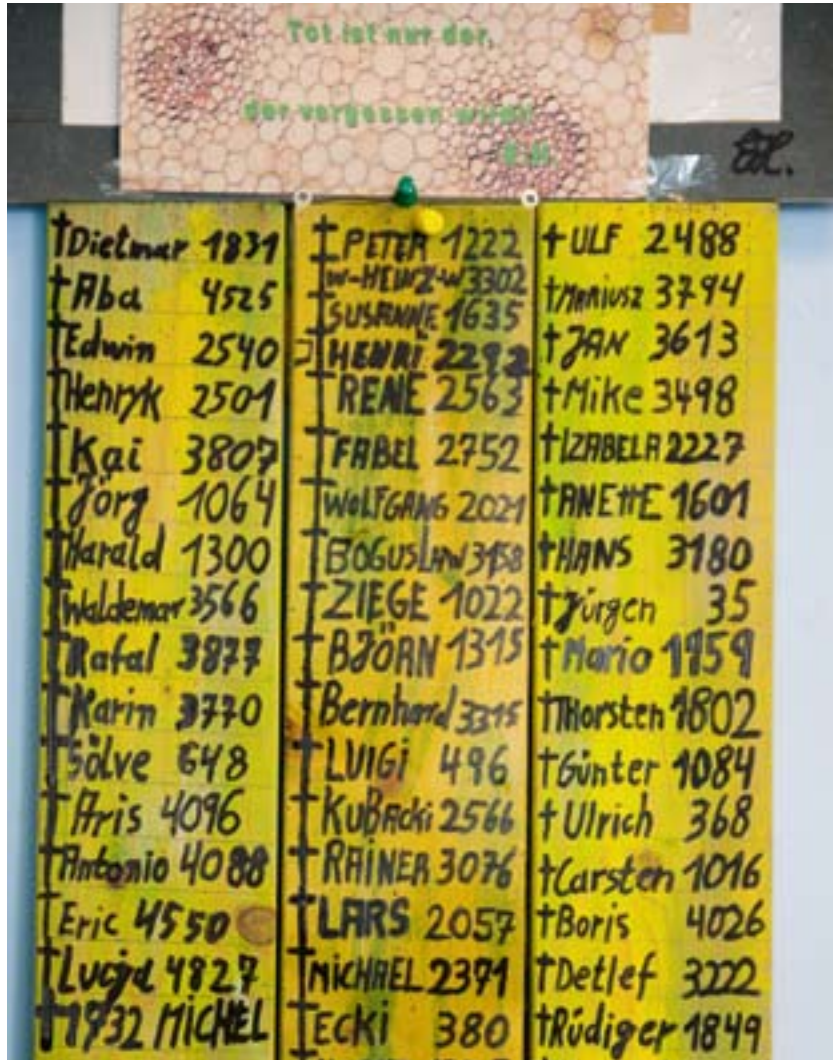 Tot ist nur der,
der vergessen wird!
†Dietmar 1831
†Aba 4525
†Edwin 2540
†Henryk 2501
†Kai 3807
†Jörg 1064
†Harald 1300
†Waldemar 3566
†Rafal 3877
†Karin 3770
†Sölve 648
†Aris 4096
†Antonio 4088
†Eric 4550
†Lucja 4827
†1732 MICHEL
†PETER 1222
W-HEINZ-W 3302
†SUSANNE 1635
†HENRI 2292
†RENE 2563
†FABEL 2752
†WOLFGANG 2021
†BOGUSLAW 3158
†ZIEGE 1022
†BJÖRN 1315
†Bernhard 3315
†LUIGI 496
†KUBACKi 2566
†RAINER 3076
†LARS 2057
†MICHAEL 2371
†ECKi 380
†ULF 2488
†MARIUSZ 3794
†JAN 3613
†Mike 3498
†IZABELA 2227
†ANETTE 1601
†HANS 3180
†Jürgen 35
†Mario 1959
†Thorsten 1802
†Günter 1084
†Ulrich 368
†Carsten 1016
†Boris 4026
†Detlef 3222
†Rüdiger 1849